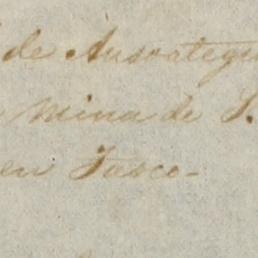 de Ansorategui
Mina de S.
en Tasco-